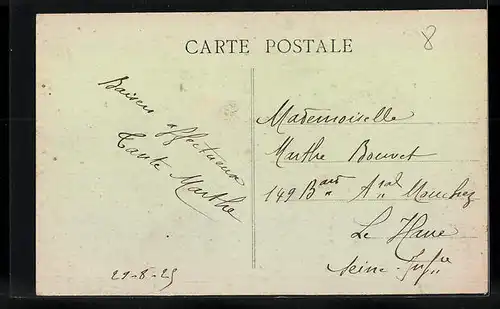 CARTE POSTALE
8
Baisers
affectueux
Tante Marthe
Mademoiselle
Marthe Bouvet
149 Bard Aral Mouchez
Le Havre
Seine-Infre
29-8-25